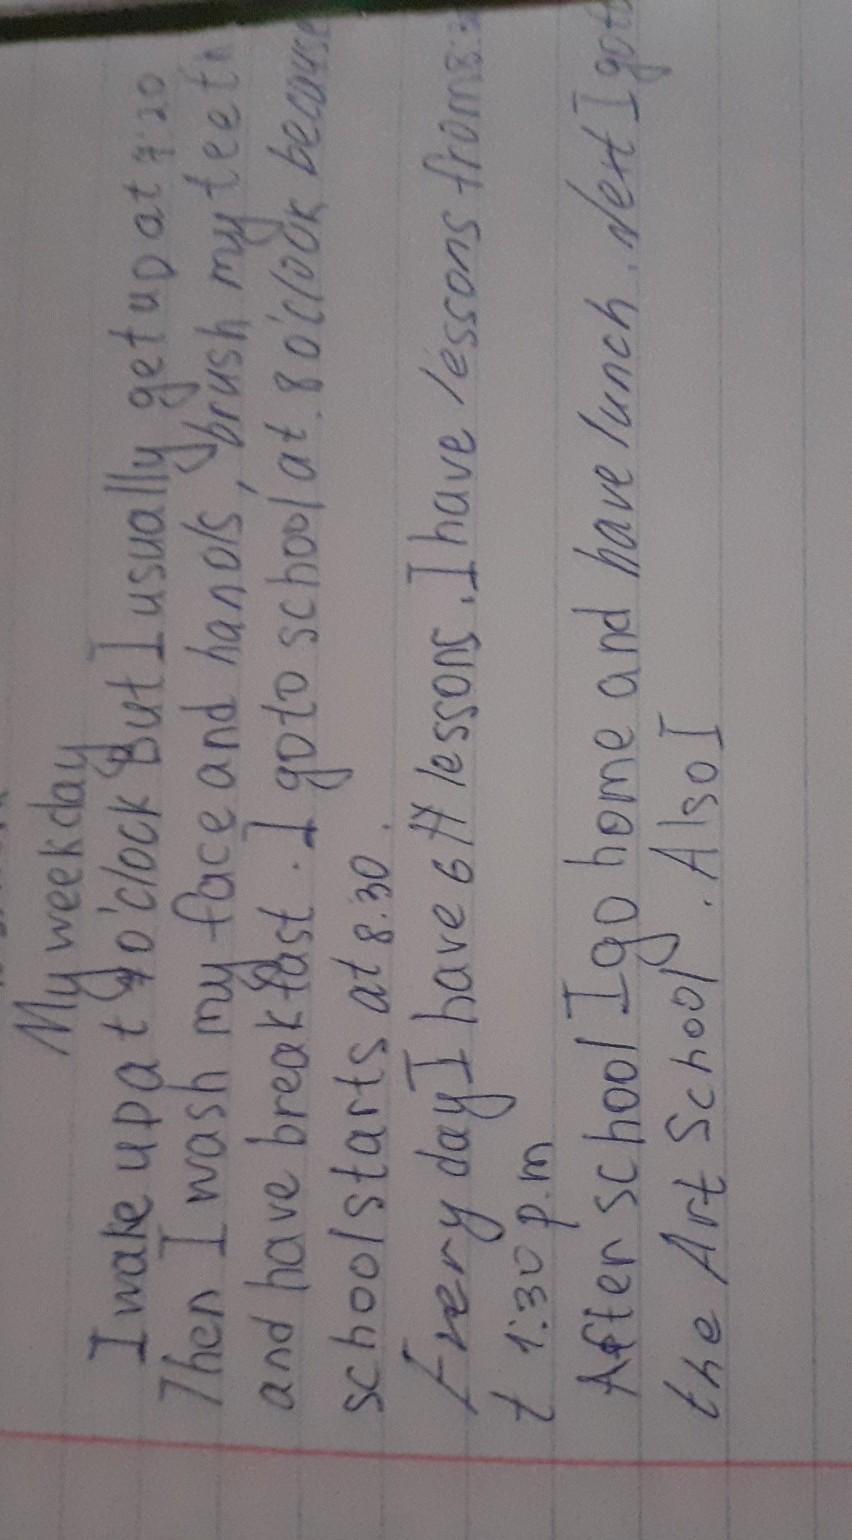 My weekday
I wake up at 7 o'clock But I usually get up at 7:20
Then I wash my face and hands, brush my teeth
and have breakfast. I go to school at 8 o'clock because
school starts at 8:30.
Every day I have 6 7 lessons. I have lessons from 8:30
t 1:30 p.m
After school I go home and have lunch. Next I go t
the Art School. Also I